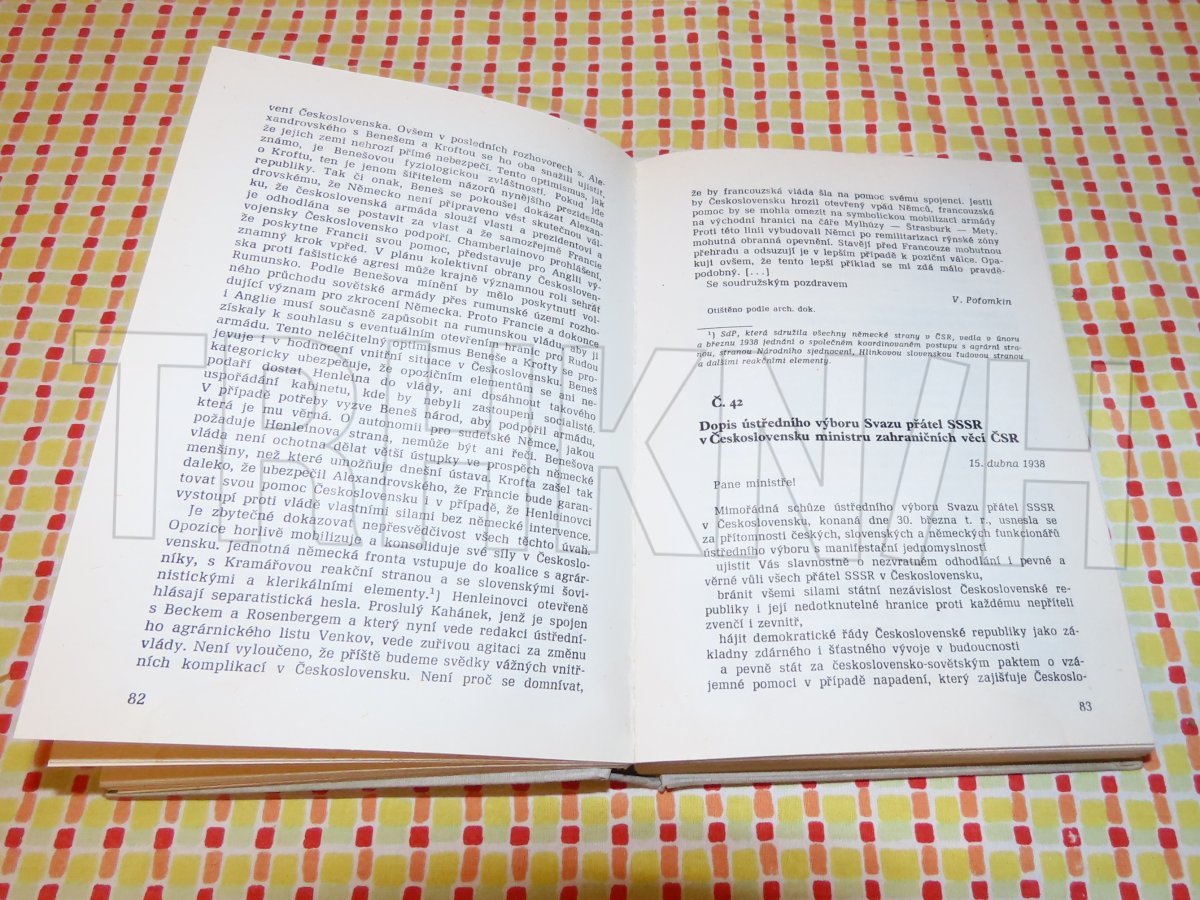 vení Československa. Ovšem v posledních rozhovorech s. Ale-
xandrovského s Benešem a Kroftou se ho oba snažili ujistit,
že jejich zemi nehrozí přímé nebezpečí. Tento optimismus, jak
známo, je Benešovou fyziologickou zvláštností. Pokud jde
o Kroftu, ten je jenom šiřitelem názorů nynějšího prezidenta
republiky. Tak či onak, Beneš se pokoušel dokázat Alexan-
drovskému, že Německo není připraveno vést skutečnou vál-
ku, že československá armáda slouží vlasti a prezidentovi a
je odhodlána se postavit za vlast a že samozřejmě Francie
vojensky Československo podpoří. Chamberlainovo prohlášení,
že poskytne Francii svou pomoc, představuje pro Anglii vý-
znamný krok vpřed. V plánu kolektivní obrany Českosloven-
ska proti fašistické agresi může krajně významnou roli sehrát
Rumunsko. Podle Benešova mínění by mělo poskytnutí vol-
ného průchodu sovětské armády přes rumunské území rozho-
dující význam pro zkrocení Německa. Proto Francie a dokonce
i Anglie musí současně zapůsobit na rumunskou vládu, aby ji
získaly k souhlasu s eventuálním otevřením hranic pro Rudou
armádu. Tento neléčitelný optimismus Beneše a Krofty se pro-
jevuje i v hodnocení vnitřní situace v Československu. Beneš
kategoricky ubezpečuje, že opozičním elementům se ani ne-
podaří dostat Henleina do vlády, ani dosáhnout takového
uspořádání kabinetu, kde by nebyli zastoupeni socialisté.
V případě potřeby vyzve Beneš národ, aby podpořil armádu,
která je mu věrná. O autonomii pro sudetské Němce, jakou
požaduje Henleinova strana, nemůže být ani řeči. Benešova
vláda není ochotna dělat větší ústupky ve prospěch německé
menšiny, než které umožňuje dnešní ústava. Krofta zašel tak
daleko, že ubezpečil Alexandrovského, že Francie bude garan-
tovat svou pomoc Československu i v případě, že Henleinovci
vystoupí proti vládě vlastními silami bez německé intervence.
Je zbytečné dokazovat nepřesvědčivost všech těchto úvah.
Opozice horlivě mobilizuje a konsoliduje své síly v Českoslo-
vensku. Jednotná německá fronta vstupuje do koalice s agrár-
níky, s Kramářovou reakční stranou a se slovenskými šovi-
nistickými a klerikálními elementy.¹) Henleinovci otevřeně
hlásají separatistická hesla. Proslulý Kahánek, jenž je spojen
s Beckem a Rosenbergem a který nyní vede redakci ústřední-
ho agrárnického listu Venkov, vede zuřivou agitaci za změnu
vlády. Není vyloučeno, že příště budeme svědky vážných vnitř-
ních komplikací v Československu. Není proč se domnívat,
82
že by francouzská vláda šla na pomoc svému spojenci. Jestli
by Československu hrozil otevřený vpád Němců, francouzská
pomoc by se mohla omezit na symbolickou mobilizaci armády
na východní hranici na čáře Mylhúzy — Strasburk — Mety.
Proti této linii vybudovali Němci po remilitarizaci rýnské zóny
mohutná obranná opevnění. Stavějí před Francouze mohutnou
přehradu a odsuzují je v lepším případě k poziční válce. Opa-
kuji ovšem, že tento lepší příklad se mi zdá málo pravdě-
podobný. [...]
Se soudružským pozdravem
V. Poťomkin
Otištěno podle arch. dok.
¹) SdP, která sdružila všechny německé strany v ČSR, vedla v únoru
a březnu 1938 jednání o společném koordinovaném postupu s agrární stra-
nou, stranou Národního sjednocení, Hlinkovou slovenskou ľudovou stranou
a dalšími reakčními elementy.
Č. 42
Dopis ústředního výboru Svazu přátel SSSR
v Československu ministru zahraničních věcí ČSR
15. dubna 1938
Pane ministře!
Mimořádná schůze ústředního výboru Svazu přátel SSSR
v Československu, konaná dne 30. března t. r., usnesla se
za přítomnosti českých, slovenských a německých funkcionářů
ústředního výboru a manifestační jednomyslností
ujistit Vás slavnostně o nezvratném odhodlání i pevné a
věrné vůli všech přátel SSSR v Československu,
bránit všemi silami státní nezávislost Československé re-
publiky i její nedotknutelné hranice proti každému nepříteli
zvenčí i zevnitř,
hájit demokratické řády Československé republiky jako zá-
kladny zdárného i šťastného vývoje v budoucnosti
a pevně stát za československo-sovětským paktem o vzá-
jemné pomoci v případě napadení, který zajišťuje Českoslo-
83
TRHKNIH